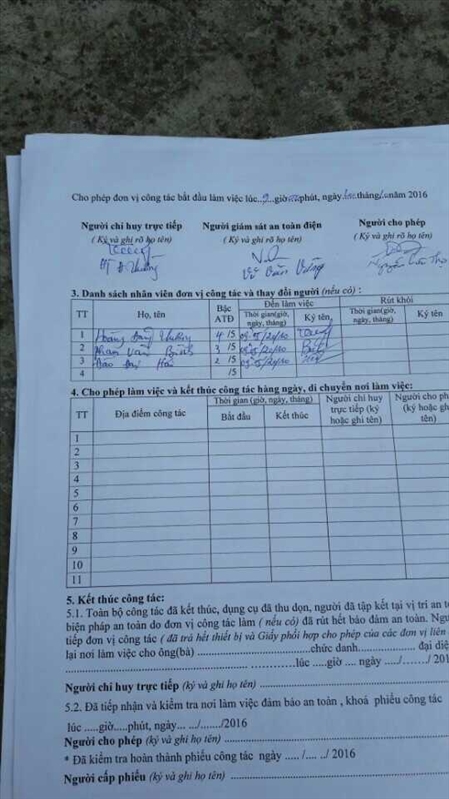 Cho phép đơn vị công tác bắt đầu làm việc lúc..9..giờ phút, ngày tháng năm 2016
Người chỉ huy trực tiếp Người giám sát an toàn điện Người cho phép
( Ký và ghi rõ họ tên) (Ký và ghi rõ họ tên) ( Ký và ghi rõ họ tên)
3. Danh sách nhân viên đơn vị công tác và thay đổi người (nếu có) :
TT Họ, tên Bậc ATĐ Đến làm việc Rút khỏi
Thời gian(giờ, ngày, tháng) Ký tên Thời gian(giờ, ngày, tháng) Ký tên
1 4 /5
2 3 /5
3 2 /5
4 /5
4. Cho phép làm việc và kết thúc công tác hàng ngày, di chuyển nơi làm việc:
TT Địa điểm công tác Thời gian (giờ, ngày, tháng) Người chỉ huy trực tiếp (ký hoặc ghi tên) Người cho ph (ký hoặc gh tên)
Bắt đầu Kết thúc
1
2
3
4
5
6
7
8
9
10
11
5. Kết thúc công tác:
5.1. Toàn bộ công tác đã kết thúc, dụng cụ đã thu dọn, người đã tập kết tại vị trí an t
biện pháp an toàn do đơn vị công tác làm ( nếu có) đã rút hết bảo đảm an toàn. Ngư
tiếp đơn vị công tác ( đã trả hết thiết bị và Giấy phối hợp cho phép của các đơn vị liên
lại nơi làm việc cho ông(bà) ..............................chức danh................ đại diệ
..................................................... lúc .....giờ .... ngày ...../......./ 201
Người chỉ huy trực tiếp (ký và ghi họ tên) ..............................
5.2. Đã tiếp nhận và kiểm tra nơi làm việc đảm bảo an toàn , khoá phiếu công tác
lúc .....giờ.....phút, ngày... .../......./2016
Người cho phép (ký và ghi họ tên) ..............................
* Đã kiểm tra hoàn thành phiếu công tác ngày ..... /.... ../ 2016
Người cấp phiếu (ký và ghi họ tên) ..............................